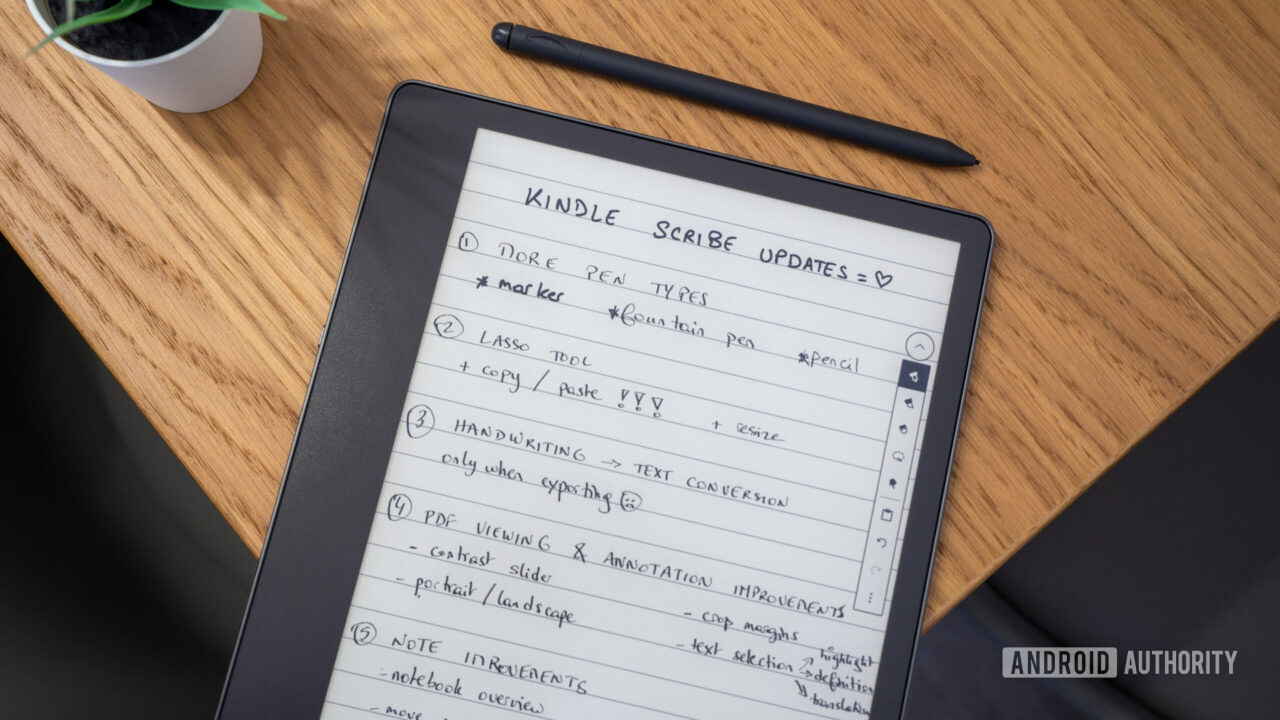 KINDLE SCRIBE UPDATES = ♡
① MORE PEN TYPES
* marker *fountain pen *pencil
② LASSO TOOL
+ copy / paste !!! + resize
③ HANDWRITING → TEXT CONVERSION
only when exporting ☹
④ PDF VIEWING & ANNOTATION IMPROVEMENTS
- contrast slider
- portrait / landscape
- crop margins
- text selection → highlight
→ definition
→ translation
⑤ NOTE IMPROVEMENTS
- notebook overview
- move
ANDROID AUTHORITY